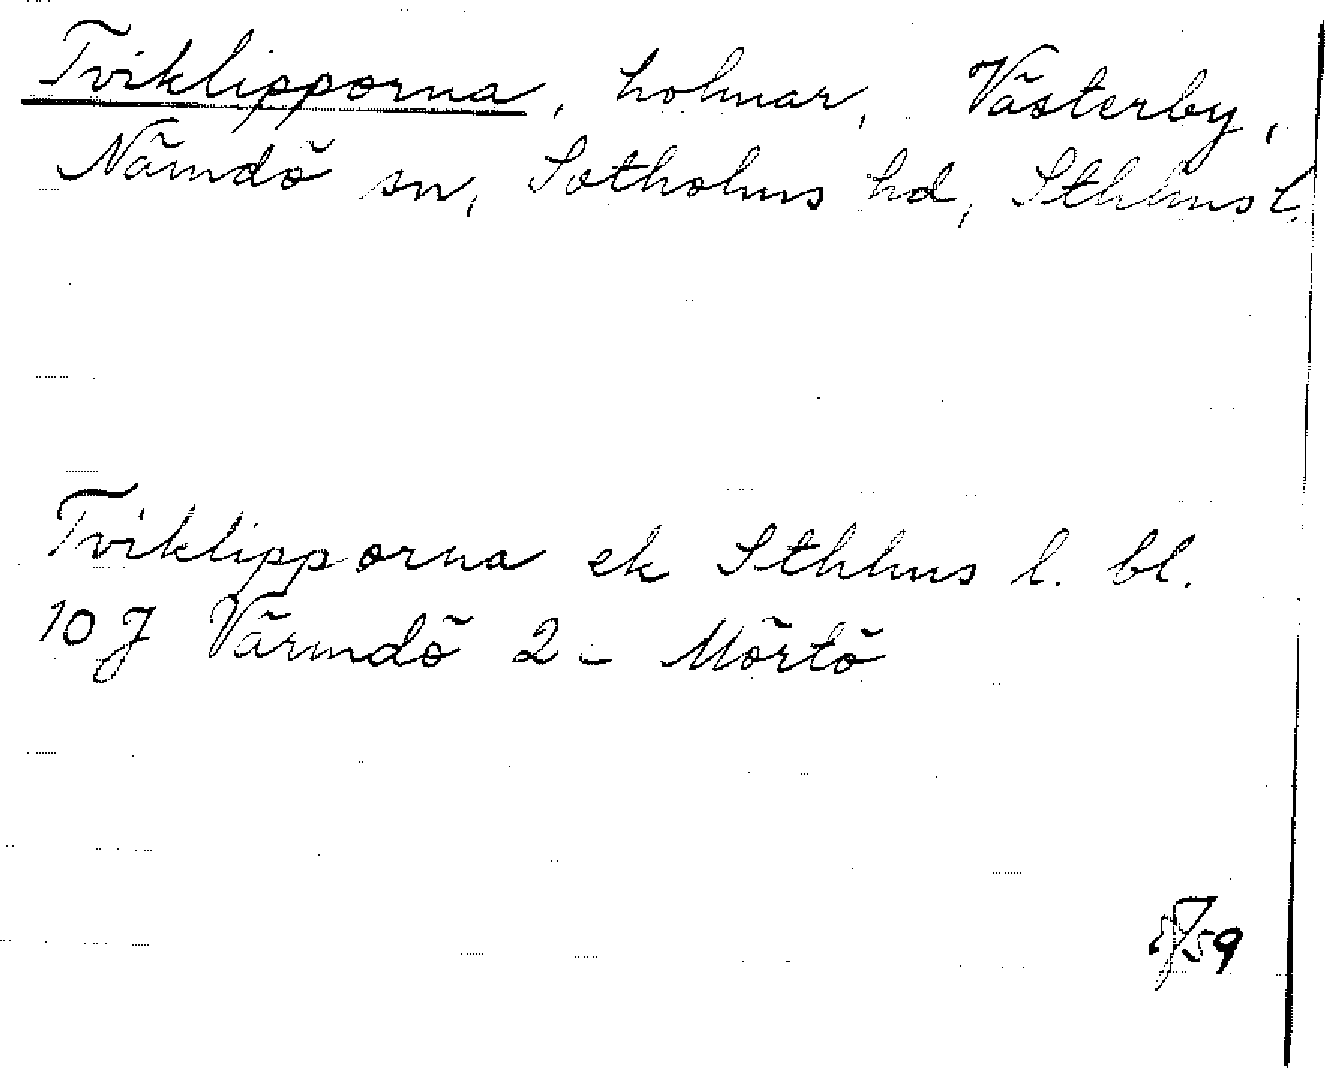 Tviklipporna, holmar, Västerby,
Nämdö sn, Sotholms hd, Sthlms l.
Tviklipporna ek Sthlms l. bl.
10 J Värmdö 2 - Mörtö
59